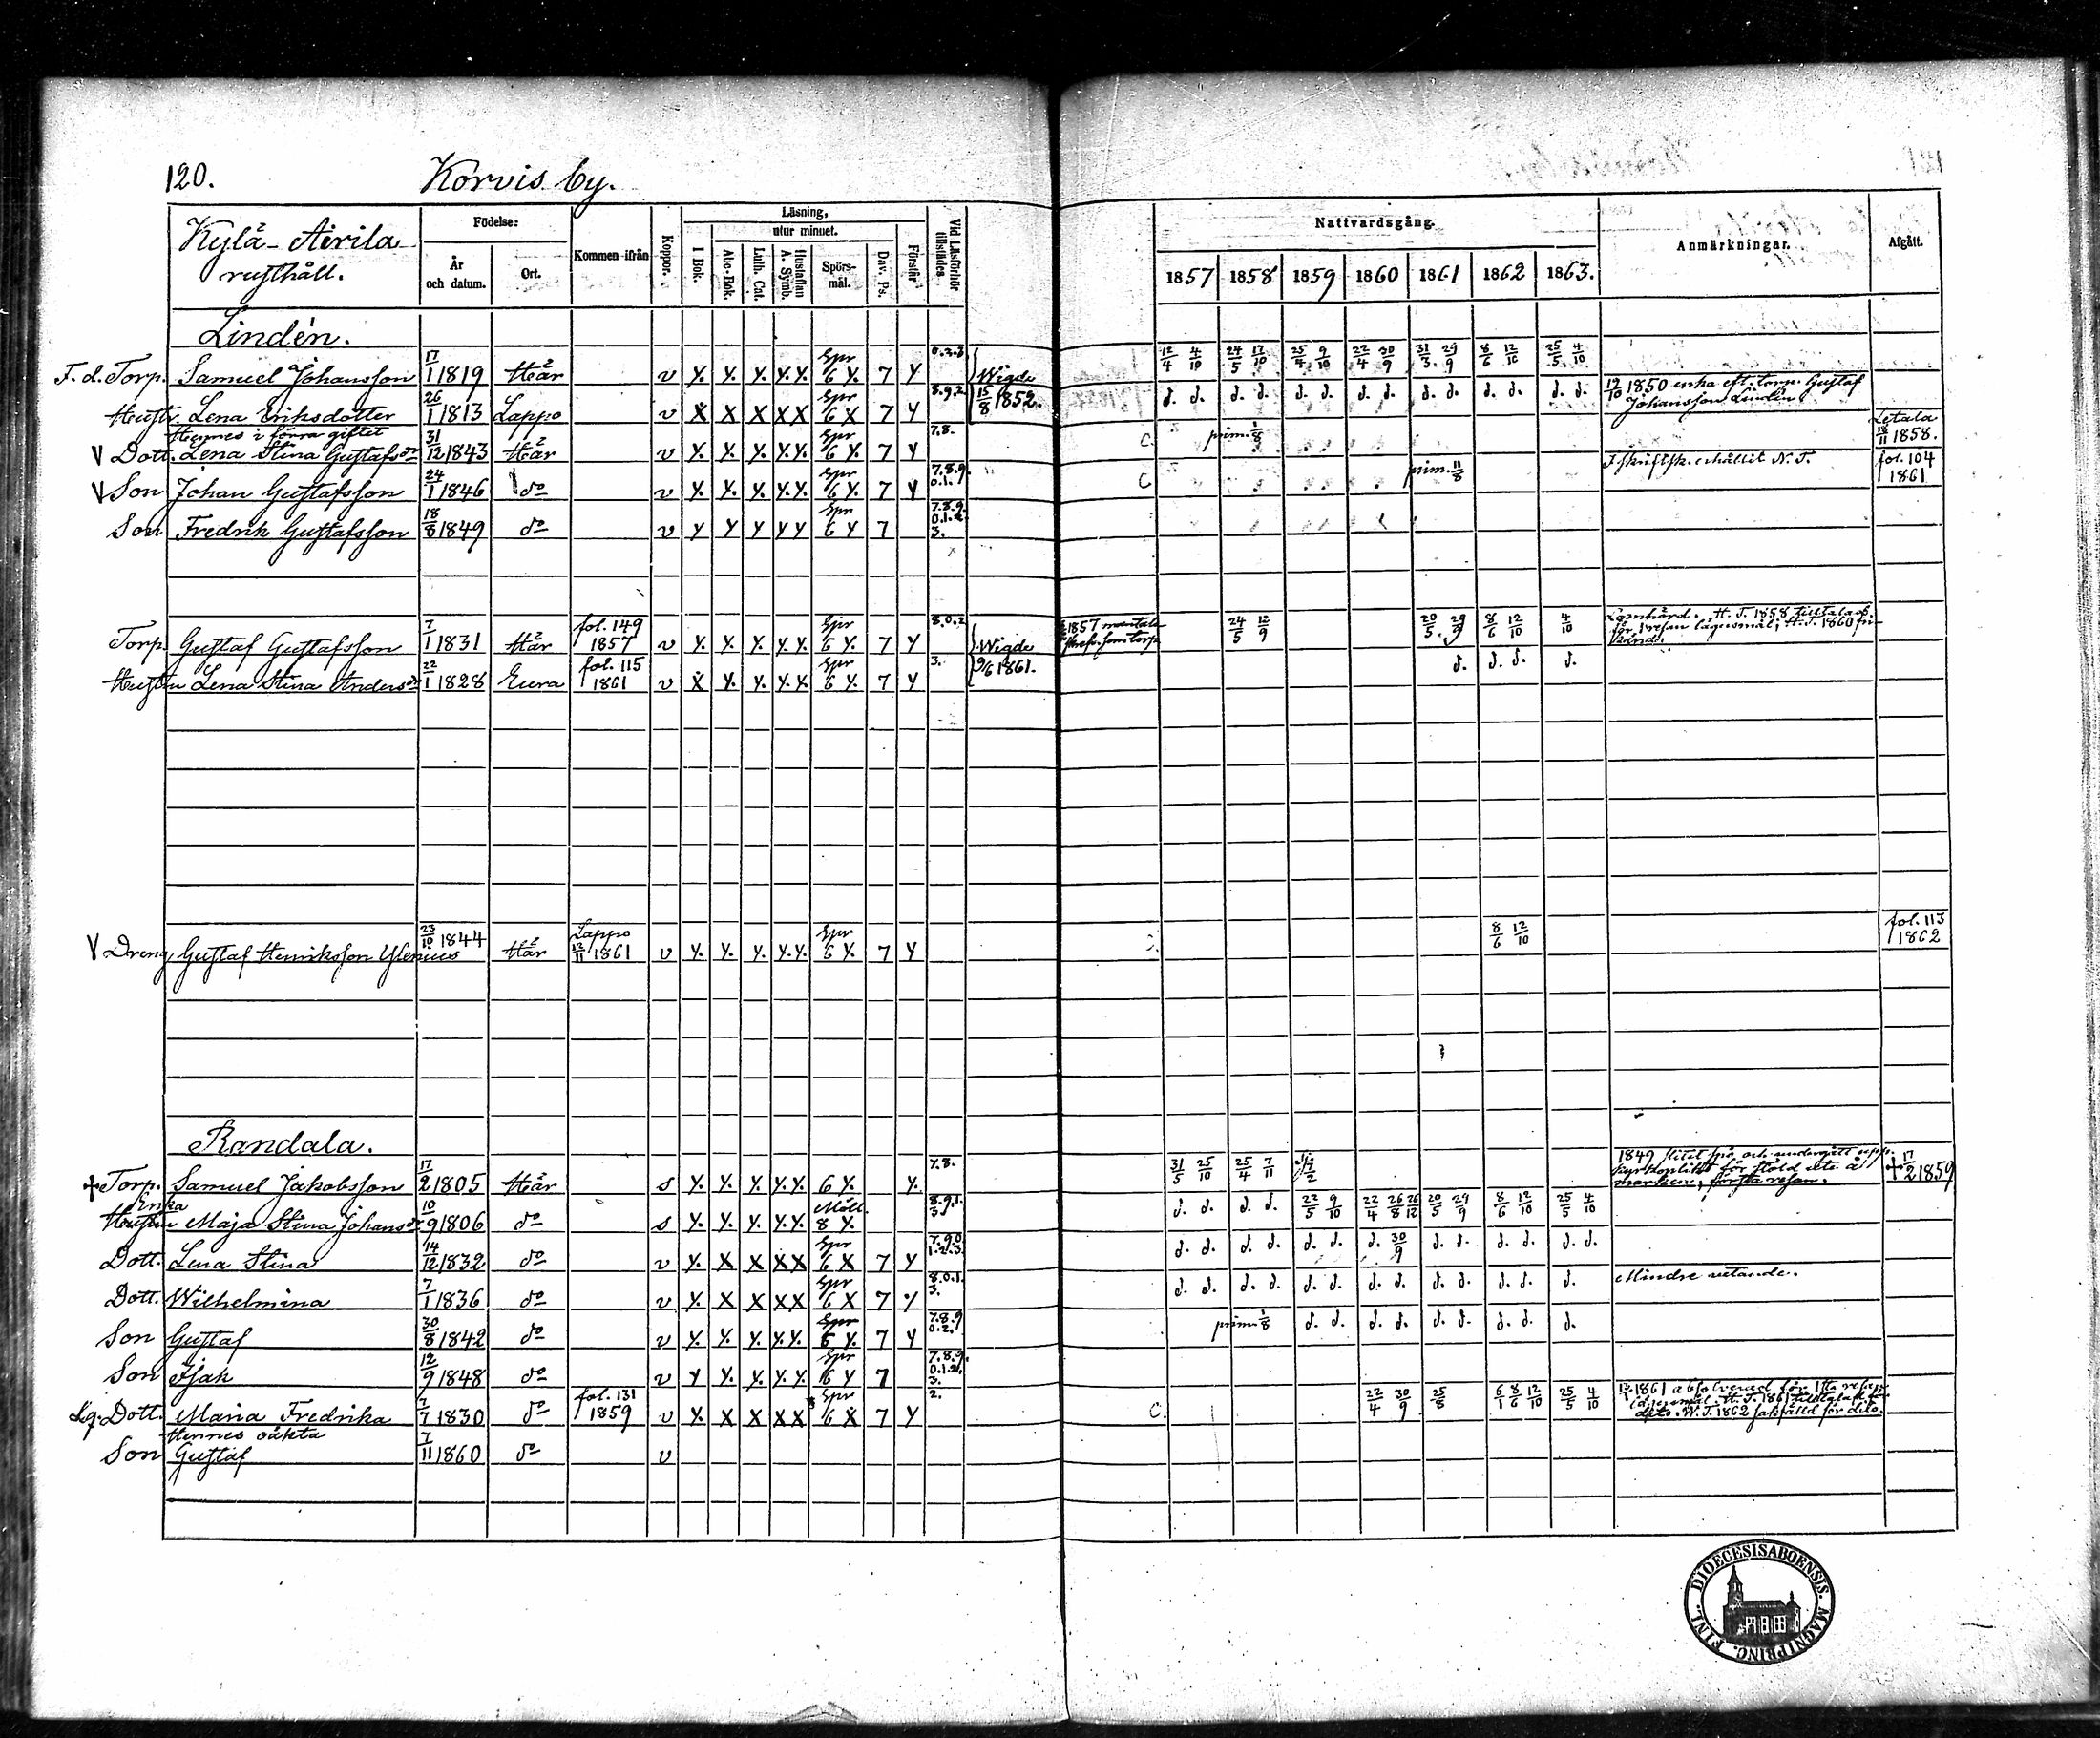 120. Korvis by.
Kylä-Airila rusthåll.
Födelse: År och datum. Ort. Kommen ifrån Koppor. Läsning, I Bok. utur minnet. Abc-Bok. Luth. Cat. Hustaflan A. Symb. Spörsmål. Dav. Ps. Förstår Vid Läsförhör tillstädes
Nattvardsgång. 1857 1858 1859 1860 1861 1862 1863. Anmärkningar. Afgått.
Lindén.
F. d. Torp. Samuel Johansson 17/1 1819 Här v y. y. y. y.y. Spr 6 y. 7 y 0.2.3 Wigde 15/8 1852. 12/4 4/10 24/5 17/10 25/4 9/10 22/4 30/9 31/3 29/9 8/6 12/10 25/5 4/10
Hustr. Lena Eriksdotter 26/1 1813 Lappo v x x x x x Spr 6 x 7 y 8.9.2 d. d. d. d. d. d. d. d. d. d. d. d. d. d. 12/10 1850 enka eft. torp. Gustaf Johansson Lindén
Hennes i förra giftet
V Dott. Lena Stina Gustafsdr 31/12 1843 Här v y. y. y. y.y. Spr 6 y. 7 y 7.8. C. prim. 1/8 Letala 18/11 1858.
V Son Johan Gustafsson 24/1 1846 do v y. y. y. y.y. Spr 6 y. 7 y 7.8.9. 0.1. C prim. 11/8 I skriftsk. erhållit N. T. fol. 104 1861
Son Fredrik Gustafsson 18/8 1849 do v y y y y y Spr 6 y 7 7.8.9. 0.1.2. 3.
Torp. Gustaf Gustafsson 7/1 1831 Här fol. 149 1857 v y. y. y. y.y. Spr 6 y. 7 y 8.0.2 Wigde 9/6 1861. 1857 som torp. 24/5 12/9 20/5 29/9 8/6 12/10 4/10 Lomhörd. H. T. 1858 för 1 resan lägersmål; H. T. 1860
Hustru Lena Stina Andersdr 22/1 1828 Eura fol. 115 1861 v x y. y. y.y. Spr 6 y. 7 y 3. d. d. d. d.
V Dreng Gustaf Henriksson Ylenius 23/10 1844 Här Lappo 12/11 1861 v y. y. y. y.y. Spr 6 y. 7 y 8/6 12/10 fol. 113 1862
Randala.
+ Torp. Samuel Jakobsson 17/2 1805 Här s y. y. y. y.y. 6 y. y. 7.8. 31/5 25/10 25/4 7/11 1849 slitit spö och undergått uppb. kyrkoplikt för stöld å marken, första resan. + 17/2 1859
Enka
Hustru Maja Stina Johansdr 10/9 1806 do s y. y. y. y.y. Mått. 8 y. 8.9.1. 3. d. d. d. d. 22/5 9/10 22/4 26/8 26/12 20/5 29/9 8/6 12/10 25/5 4/10
Dott. Lena Stina 14/12 1832 do v y. x x x x Spr 6 x 7 y 7.9.0 1.2.3. d. d. d. d. d. d. d. 30/9 d. d. d. d. d. d.
Dott. Wilhelmina 7/1 1836 do v y. x x x x Spr 6 x 7 y 8.0.1. 3. d. d. d. d. d. d. d. d. d. d. d. d. d. Mindre vetande.
Son Gustaf 30/8 1842 do v y. y. y. y.y. Spr 6 y. 7 y 7.8.9 0.2. prim. 1/8 d. d. d. d. d. d. d. d. d.
Son Isak 12/9 1848 do v y y. y. y.y. Spr 6 y 7 7.8.9. 0.1.2. 3.
Lg. Dott. Maria Fredrika 7/7 1830 do fol. 131 1859 v y. x x x x Spr 6 x 7 y 2. C. 22/4 30/9 25/8 6/1 8/6 12/10 25/5 4/10 1861 absolverad för 1sta resan H. T. 1861 dito. W. T. 1862 sakfälld för dito.
Hennes oäkta
Son Gustaf 7/11 1860 do v
DIOECESIS ABOENSIS. MAGNI PRINC. FINL.